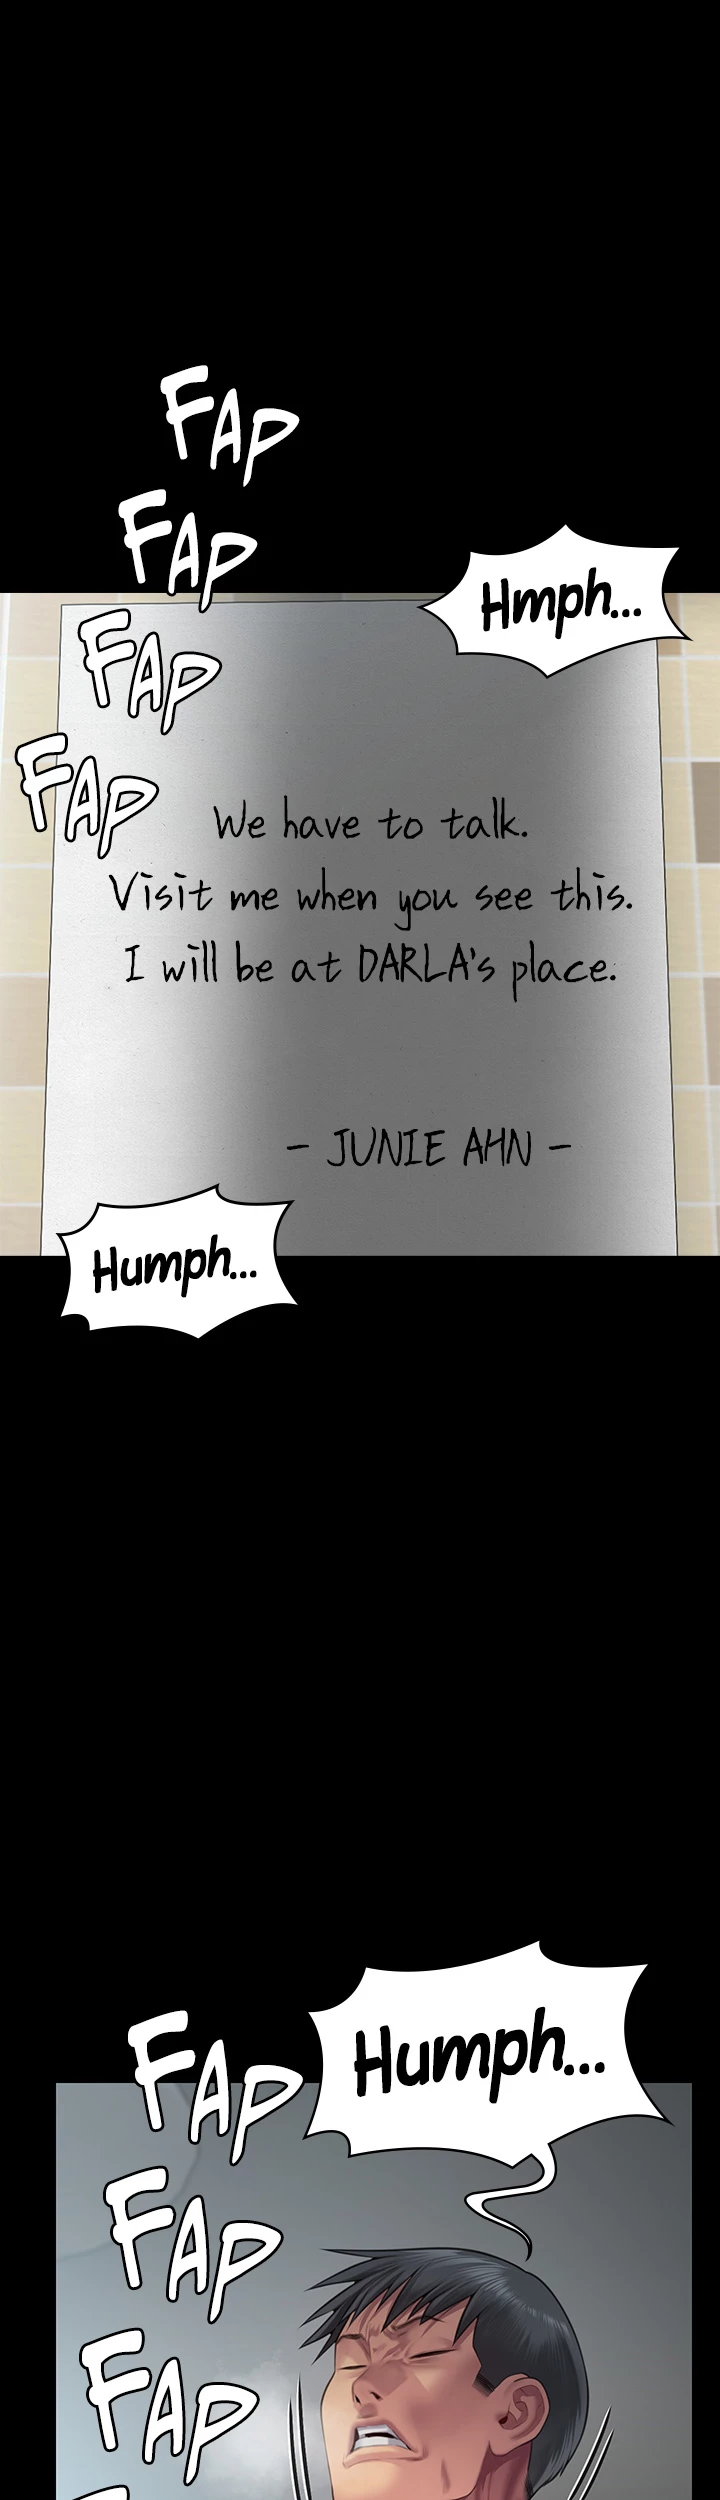 FAP
FAP
Hmph...
FAP
FAP
We have to talk.
Visit me when you see this.
I will be at DARLA's place.
- JUNIE AHN -
Humph...
Humph...
FAP
FAP
FAP